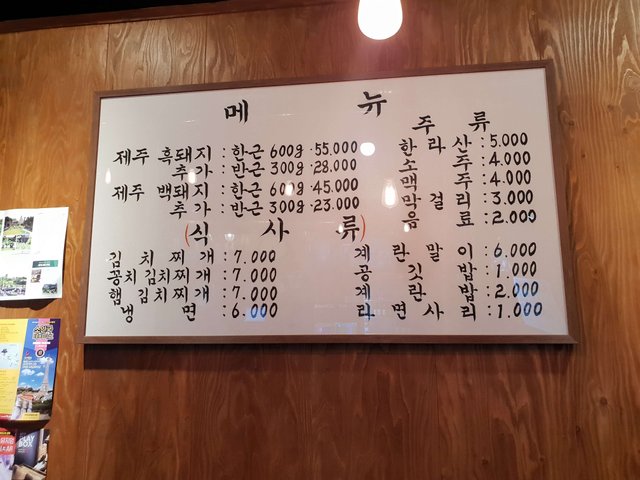 메 뉴
제주 흑돼지 : 한근 600g · 55.000
추가 : 반근 300g · 28.000
제주 백돼지 : 한근 600g · 45.000
추가 : 반근 300g · 23.000
주 류
한라산 : 5.000
소주 : 4.000
맥주 : 4.000
막걸리 : 3.000
음료 : 2.000
(식 사 류)
김치찌개 : 7.000
꽁치김치찌개 : 7.000
햄김치찌개 : 7.000
냉면 : 6.000
계란말이 : 6.000
공깃밥 : 1.000
계란밥 : 2.000
라면사리 : 1.000
CLAY
BOX